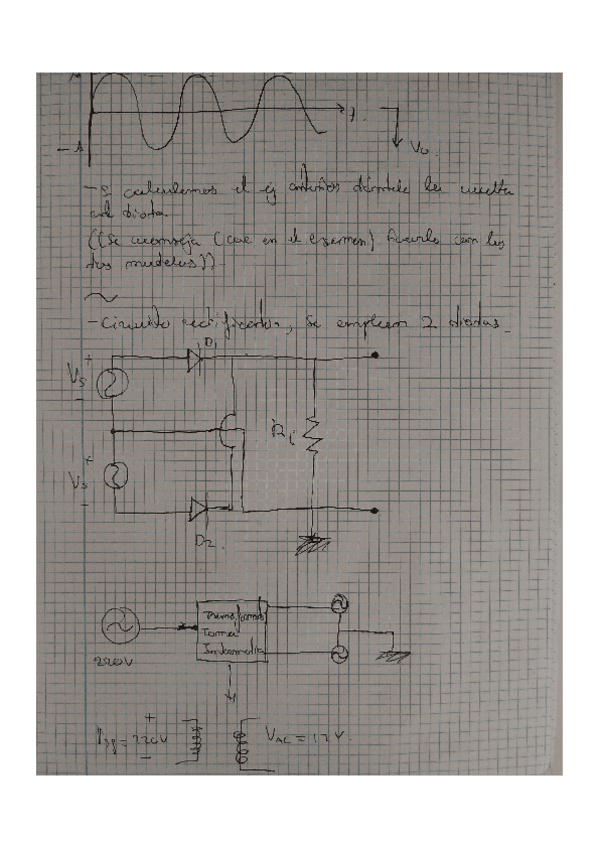 t.
- A
Vo
- si calculemos el ej dándole la vuelta
al diodo.
((Se aconseja (que en el examen) hacerlo con los
dos modelos))
- Circuito rectificador, se emplean 2 diodos.
D1
+
Vs
-
+
Vs
-
D2
Transformador
Toma
Intermedia
220V
+
= 220V
-
VAC = 12V.